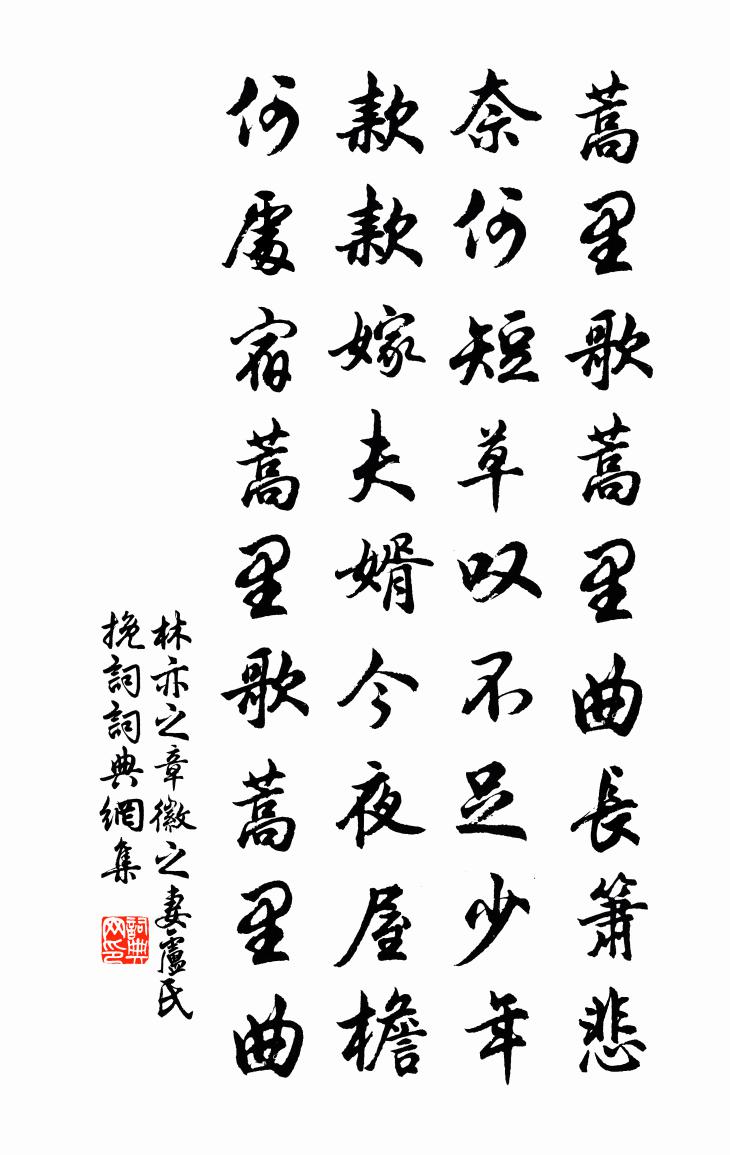 蒿里歌蒿里曲長簫悲
奈何短草叹不足少年
款款嫁夫婿今夜屋檐
何處宿蒿里歌蒿里曲
林亦之章徽之妻盧氏
挽詞詞典網集
詞典
网印